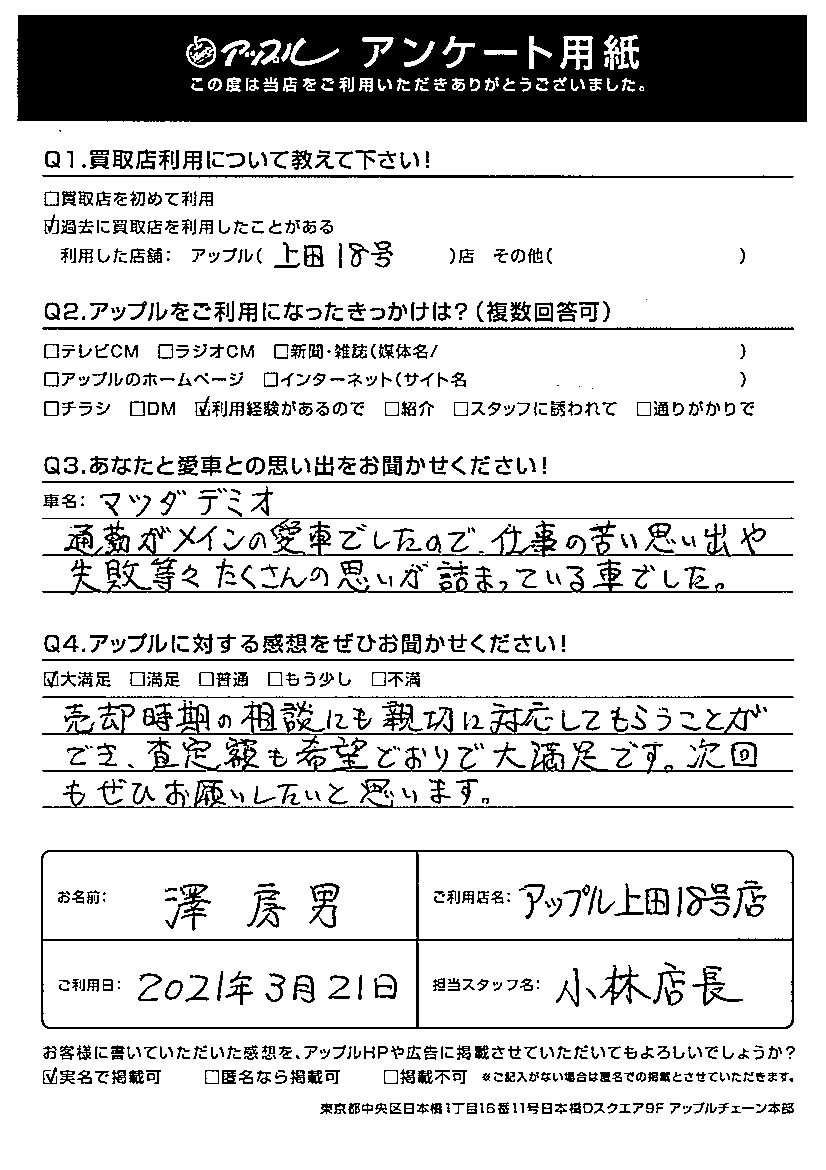 アップル アンケート用紙
この度は当店をご利用いただきありがとうございました。
Q1.買取店利用について教えて下さい!
□買取店を初めて利用
☑過去に買取店を利用したことがある
利用した店舗: アップル( 上田18号 )店 その他( )
Q2.アップルをご利用になったきっかけは?(複数回答可)
□テレビCM □ラジオCM □新聞・雑誌(媒体名/ )
□アップルのホームページ □インターネット(サイト名 )
□チラシ □DM ☑利用経験があるので □紹介 □スタッフに誘われて □通りがかりで
Q3.あなたと愛車との思い出をお聞かせください!
車名: マツダ デミオ
通勤がメインの愛車でしたので、仕事の苦い思い出や
失敗等々たくさんの思いが詰まっている車でした。
Q4.アップルに対する感想をぜひお聞かせください!
☑大満足 □満足 □普通 □もう少し □不満
売却時期の相談にも親切に対応してもらうことが
でき、査定額も希望どおりで大満足です。次回
もぜひお願いしたいと思います。
お名前: 澤 房男
ご利用店名: アップル上田18号店
ご利用日: 2021年3月21日
担当スタッフ名: 小林店長
お客様に書いていただいた感想を、アップルHPや広告に掲載させていただいてもよろしいでしょうか?
☑実名で掲載可 □匿名なら掲載可 □掲載不可 ※ご記入がない場合は匿名での掲載とさせていただきます。
東京都中央区日本橋1丁目16番11号日本橋Dスクエア9F アップルチェーン本部